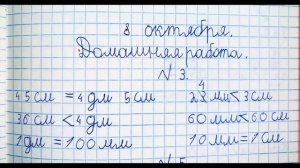 8 октября.
Домашняя работа.
N 3.
45 см = 4 дм 5 см 24 мм < 3 см
36 см < 4 дм 60 мм < 60 см
1 дм = 100 мм 10 мм = 1 см